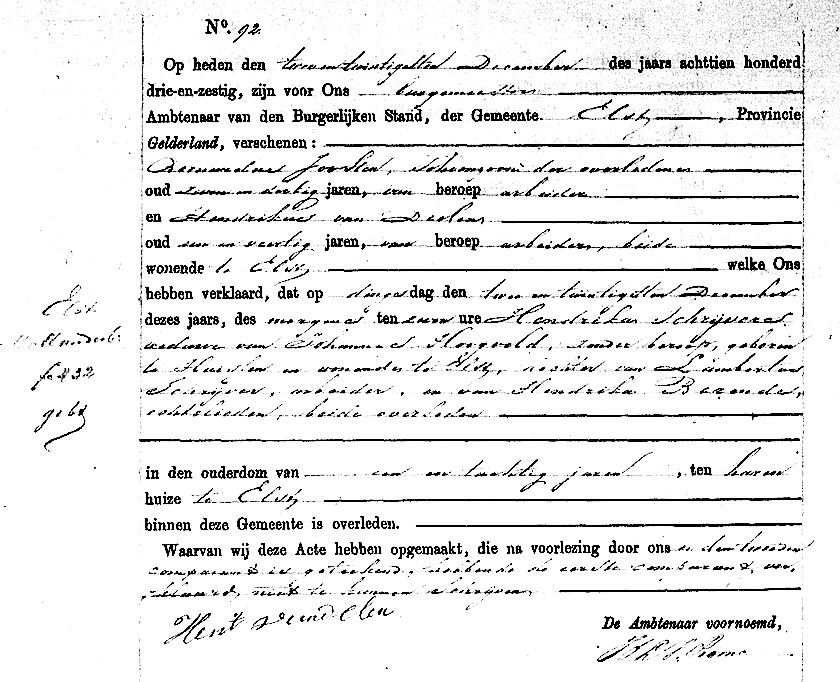 No. 92.
Op heden den twee en twintigsten December des jaars achttien honderd
drie-en-zestig, zijn voor Ons burgemeester
Ambtenaar van den Burgerlijken Stand, der Gemeente. Elst, Provincie
Gelderland, verschenen:
Bernardus Joosten, schoonzoon der overledene
oud zeven en dertig jaren, van beroep arbeider
en Hendrikus van Deelen
oud een en veertig jaren, van beroep arbeider, beide
wonende te Elst welke Ons
hebben verklaard, dat op dingsdag den twee en twintigsten December
dezes jaars, des morgens ten zeven ure Hendrika Schrijvers
weduwe van Johannes Hoogveld, zonder beroep, geboren
te en wonende te Elst, dochter van Lambertus
Schrijver, arbeider, en van Hendrika Berendes,
echtelieden, beide overleden
Elst
in den ouderdom van een en tachtig jaren, ten haren
huize te Elst
binnen deze Gemeente is overleden.
Waarvan wij deze Acte hebben opgemaakt, die na voorlezing door ons en den tweeden
comparant is geteekend, hebbende de eerste comparant ver-
klaard, niet te kunnen schrijven
De Ambtenaar voornoemd,